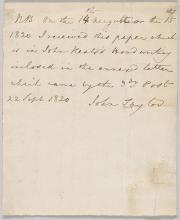 NB On the 14th August or the 15th
1820 I received this paper which
is in John Keats's Handwriting
inclosed in the annexed letter
which came by the 3dy Post
22 Sept 1820
John Taylor